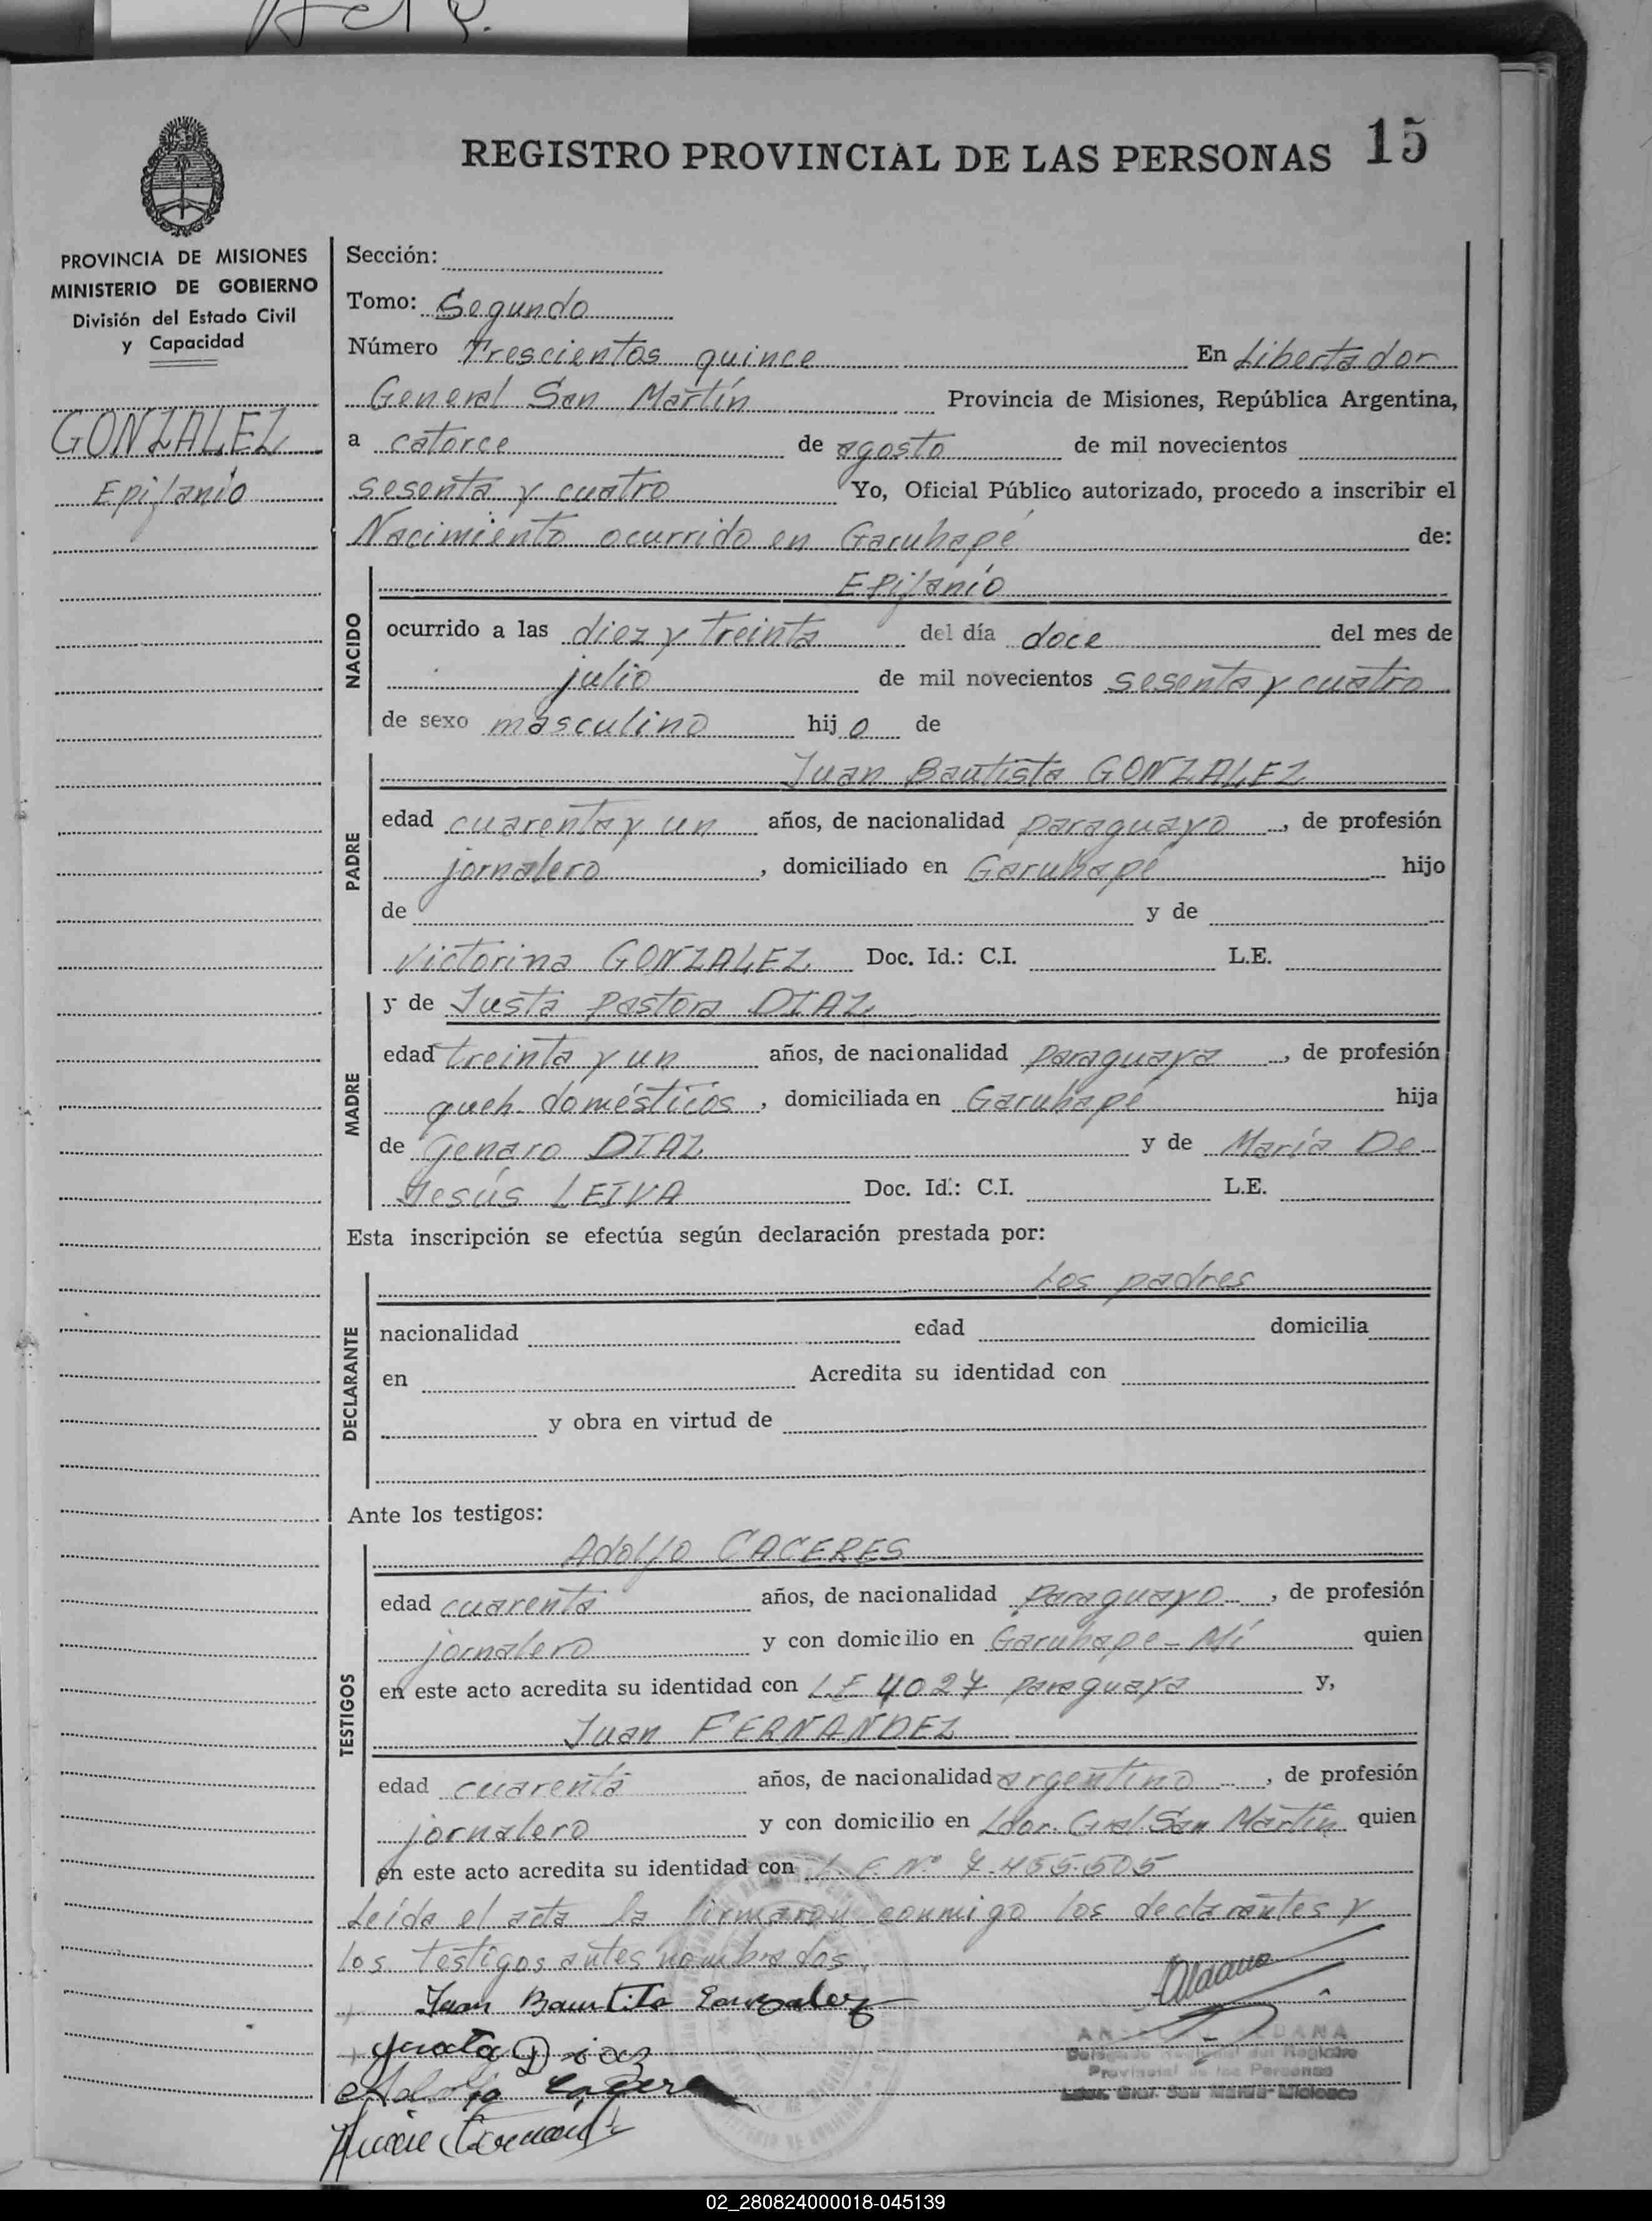 Acta.
REGISTRO PROVINCIAL DE LAS PERSONAS 15
PROVINCIA DE MISIONES
MINISTERIO DE GOBIERNO
División del Estado Civil
y Capacidad
GONZALEZ
Epifanio
Sección:
Tomo: Segundo
Número Trescientos quince En Libertador
General San Martín Provincia de Misiones, República Argentina,
a catorce de agosto de mil novecientos
sesenta y cuatro Yo, Oficial Público autorizado, procedo a inscribir el
Nacimiento ocurrido en Garuhapé de:
NACIDO
Epifanio
ocurrido a las diez y treinta del día doce del mes de
julio de mil novecientos sesenta y cuatro
de sexo masculino hijo de
PADRE
Juan Bautista GONZALEZ
edad cuarenta y un años, de nacionalidad paraguayo, de profesión
jornalero, domiciliado en Garuhapé hijo
de y de
Victorina GONZALEZ Doc. Id.: C.I. L.E.
MADRE
y de Justa Pastora DIAZ
edad treinta y un años, de nacionalidad paraguaya, de profesión
queh. domésticos, domiciliada en Garuhapé hija
de Genaro DIAZ y de María De
Jesús LEIVA Doc. Id.: C.I. L.E.
Esta inscripción se efectúa según declaración prestada por:
DECLARANTE
Los padres
nacionalidad edad domicilia
en Acredita su identidad con
y obra en virtud de
Ante los testigos:
TESTIGOS
Adolfo CACERES
edad cuarenta años, de nacionalidad paraguayo, de profesión
jornalero y con domicilio en Garuhape-Mí quien
en este acto acredita su identidad con L.E 4027 paraguaya y,
Juan FERNANDEZ
edad cuarenta años, de nacionalidad argentino, de profesión
jornalero y con domicilio en Ldor. Gral San Martín quien
en este acto acredita su identidad con L.E. Nº 7.455.505
Leída el acta la firmaron conmigo los declarantes y
los testigos antes nombrados.
Juan Bautista Gonzalez
Justa Diaz
Adolfo Cacere
Aldana
Delegado del Registro
Provincial de las Personas
Ldor. Gral. San Martín-Misiones
02_280824000018-045139